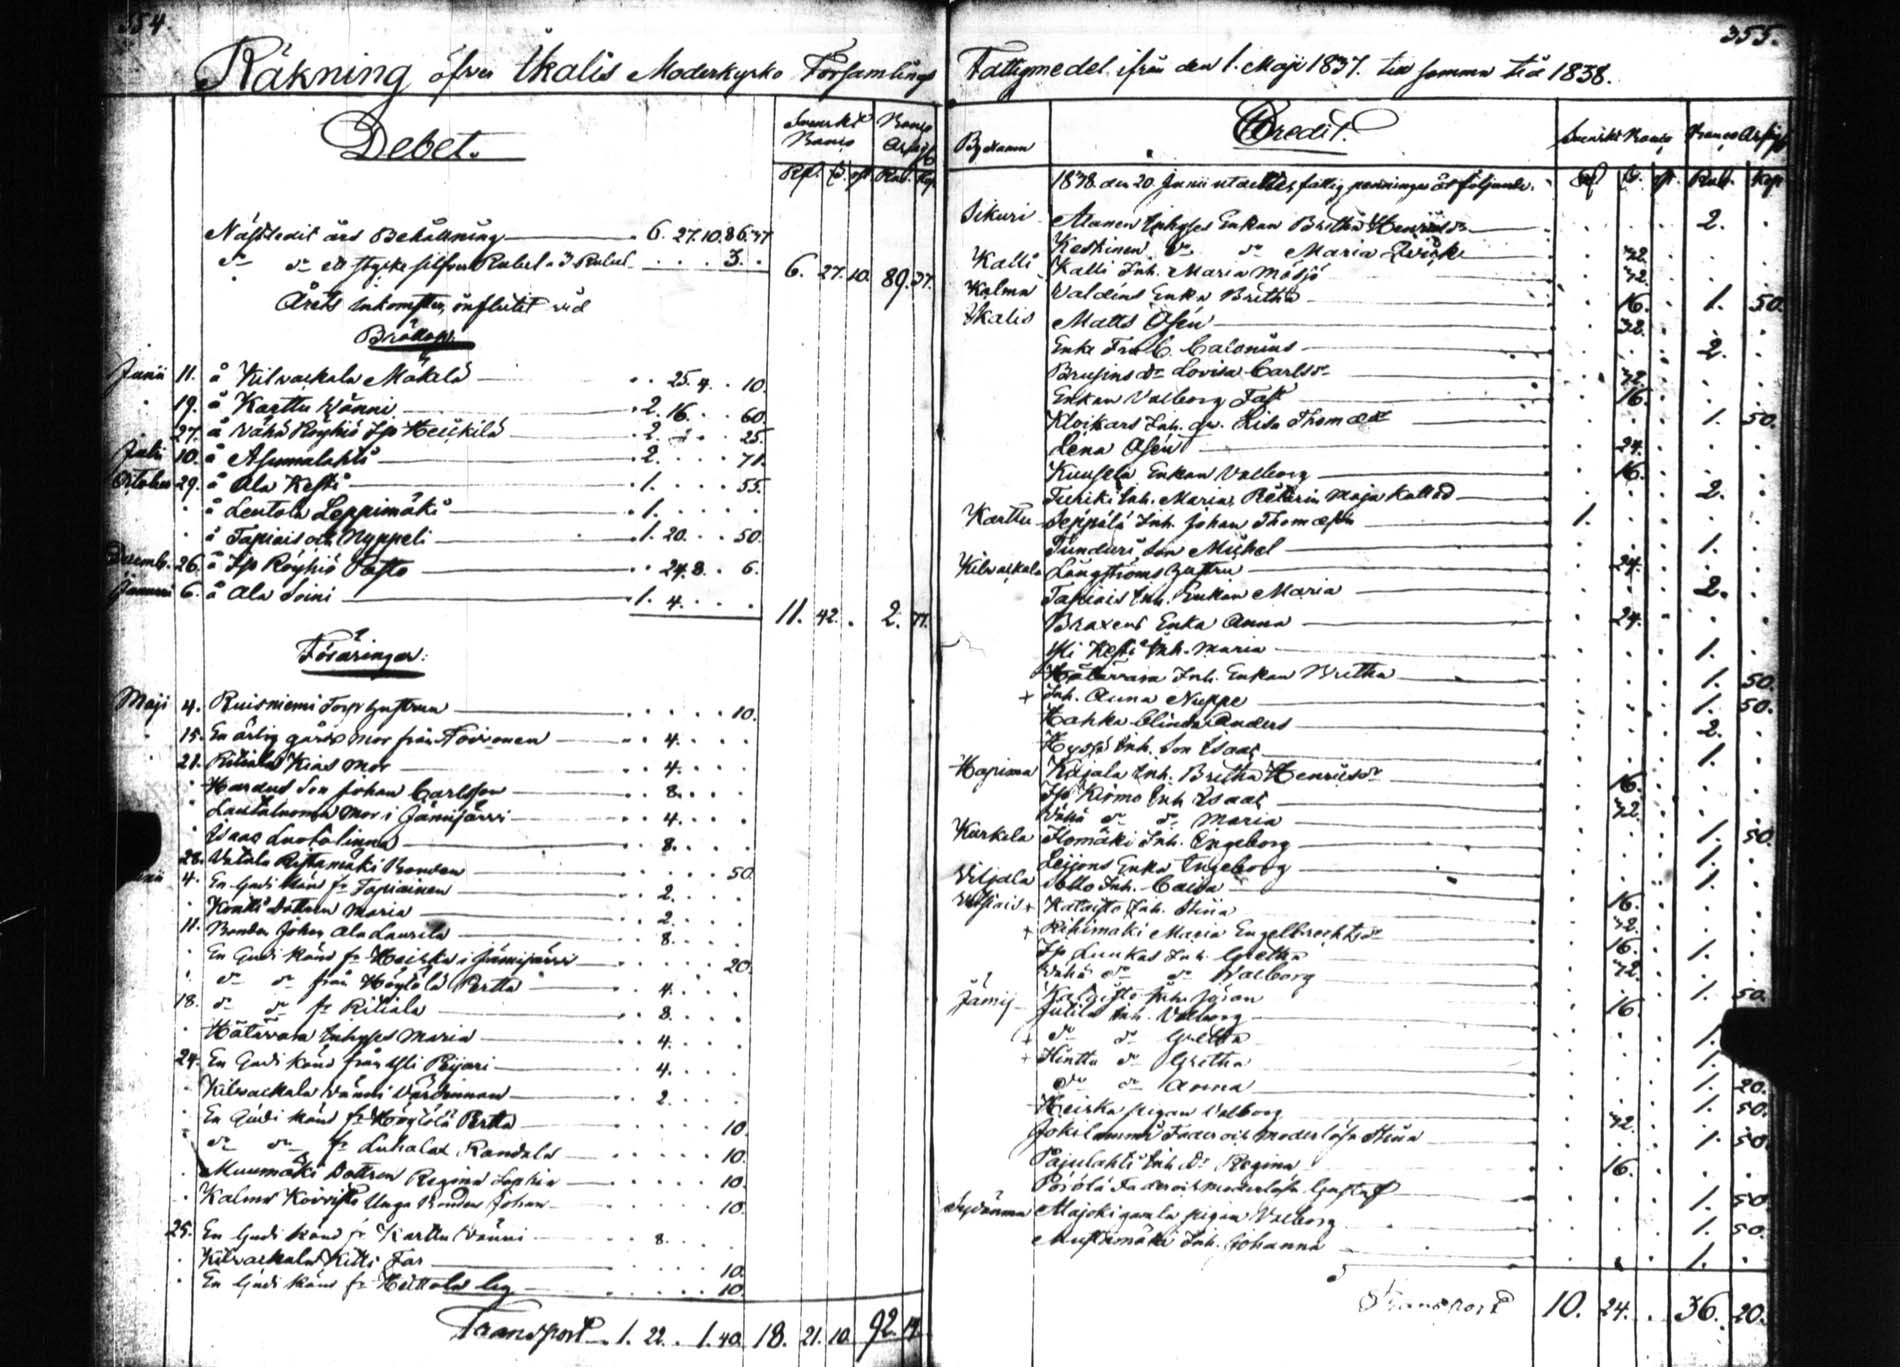 354.
Räkning öfver Ikalis Moderkyrko Församlings
Debet.
Svenskt Banco
Banco Assign
Rdl. ß. rst. Rub. Kop.
Nästledit års Behållning 6. 27. 10. 86. 37
do do ett stycke silfver Rubel a 3 Rubel 3.
6. 27. 10. 89. 37.
Årets Inkomster, influtit vid
Bröllop:
Junii 11. å Kilvackala Mäkelä 25. 4. 10.
19. å Karttu Wänni 2. 16. 60.
27. å Vähä Röyhiö Heickilä 2. 25.
Julii 10. å Asumalahti 2. 71.
October 29. å Ala Kesti 1. 55.
å Leutola Leppimäki 1.
å Tapiais och Nyppeli 1. 20. 50.
Decemb. 26. å Iso Röyhiö Pasto 24. 8. 6.
Januari 6. å Ala Soini 1. 4.
11. 42. 2. 77.
Föräringar:
Maji 4. Ruisniemi Torp 10.
15. En ärlig gårds mor från Toivonen 4.
21. Kitiala Kias mor 4.
Hardus Son Johan Carlsson 8.
Lautaluoma mor i Jämijärvi 4.
Isaac Luotolinna 8.
28. Vatula Ristamäki Bonden 50.
Junii 4. En Gudi känd fr Tapiainen 2.
Kontti Dottren Maria 2.
11. Bonden Johan Ala Laurila 8.
En Gudi känd fr Heiska i Jämijärvi 20.
do do från Höylölä Pertta 4.
18. do do fr Kitiala 8.
Hätävara Inhyses Maria 4.
24. En Gudi känd från Yli Peijari 4.
Kilvackala Wänni Värdinnan 2.
En Gudi känd fr Höylölä Pertta 10.
do do fr Luhalax Randala 10.
Muumäki Dottren Regina Sophia 10.
Kalma Koivisto Unga Bonden Johan 10.
25. En Gudi känd fr Karttu Wänni 8.
Kilvackala Kitti Far 10.
En Gudi känd fr Heittola by 10.
Transport 1. 22. 1. 40. 18. 21. 10. 92. 14.
355.
Fattigmedel, ifrån den 1. Maji 1837. till samma tid 1838.
Credit.
Bynamn
Svenskt Banco
Banco Assign
ß. rst. Rub. Kop.
1838. den 20. Junii utdeltes fattig penningar åt följande.
Sikuri Alanen Inhyses Enkan Britha Henricsdr 2.
Keskinen do do Maria 32.
Kalli Kalli Inh. Maria 32.
Kalma Valdens Enka Britha 16. 1. 50.
Ikalis Matts Osén 32.
Enke Fru C. Calonius 2.
Brusins Dr Lovisa Carlsdr 32.
Enkan Valborg Fast 16.
Kloikars Inh. Lisa Thomædr 1. 50.
Lena Osén 24.
Kuusela Enkan Valborg 16.
Tuhiki Inh. Maria, Maja kallad 2.
Karttu Seppälä Inh. Johan Thomæson 1.
Tunduri Son Michel 1.
Kilvackala Långströms 24.
Tapiais Inh. Enkan Maria 2.
Braxens Enka Anna 24.
Yli Kesti Inh. Maria 1.
Hätävara Inh. Enkan Britha 1. 50.
+ Inh. Anna Nuppe 1. 50.
Hahka blinda Anders 2.
Inh. Son Isaac 1.
Hapima Kajala Inh. Britha Henricsdr 16.
Iso Kiimo Inh. Isaac 32.
Vähä do do Maria
Kurkela Ilomäki Inh. Ingeborg 1. 50.
Leijons Enka Ingeborg 1.
Viljala Inh. Caisa 1.
+ Kataisto Inh. Stina 16.
+ Riihimäki Maria Engelbrechtsdr 32.
Iso Luukas Inh. Gretha 16. 1.
Vähä do do Walborg 32.
Jämij Inh. Göran 1. 50.
Julila Inh. Valborg 16.
+ do do Gretha 1.
+ Hinttu do Gretha 1.
do do Anna 1. 20.
Heiska pigan Valborg 1. 50.
Jokilammi Fader och moderlösa Stina 32. 1. 50.
Pajulahti Inh. Dr Regina 16.
Fader och moderlösa Gustaf 1. 50.
Sydänma Majoki gamla pigan Valborg 1. 50.
Mustamäki Inh. Johanna 1.
Transport 10. 24. 36. 20.